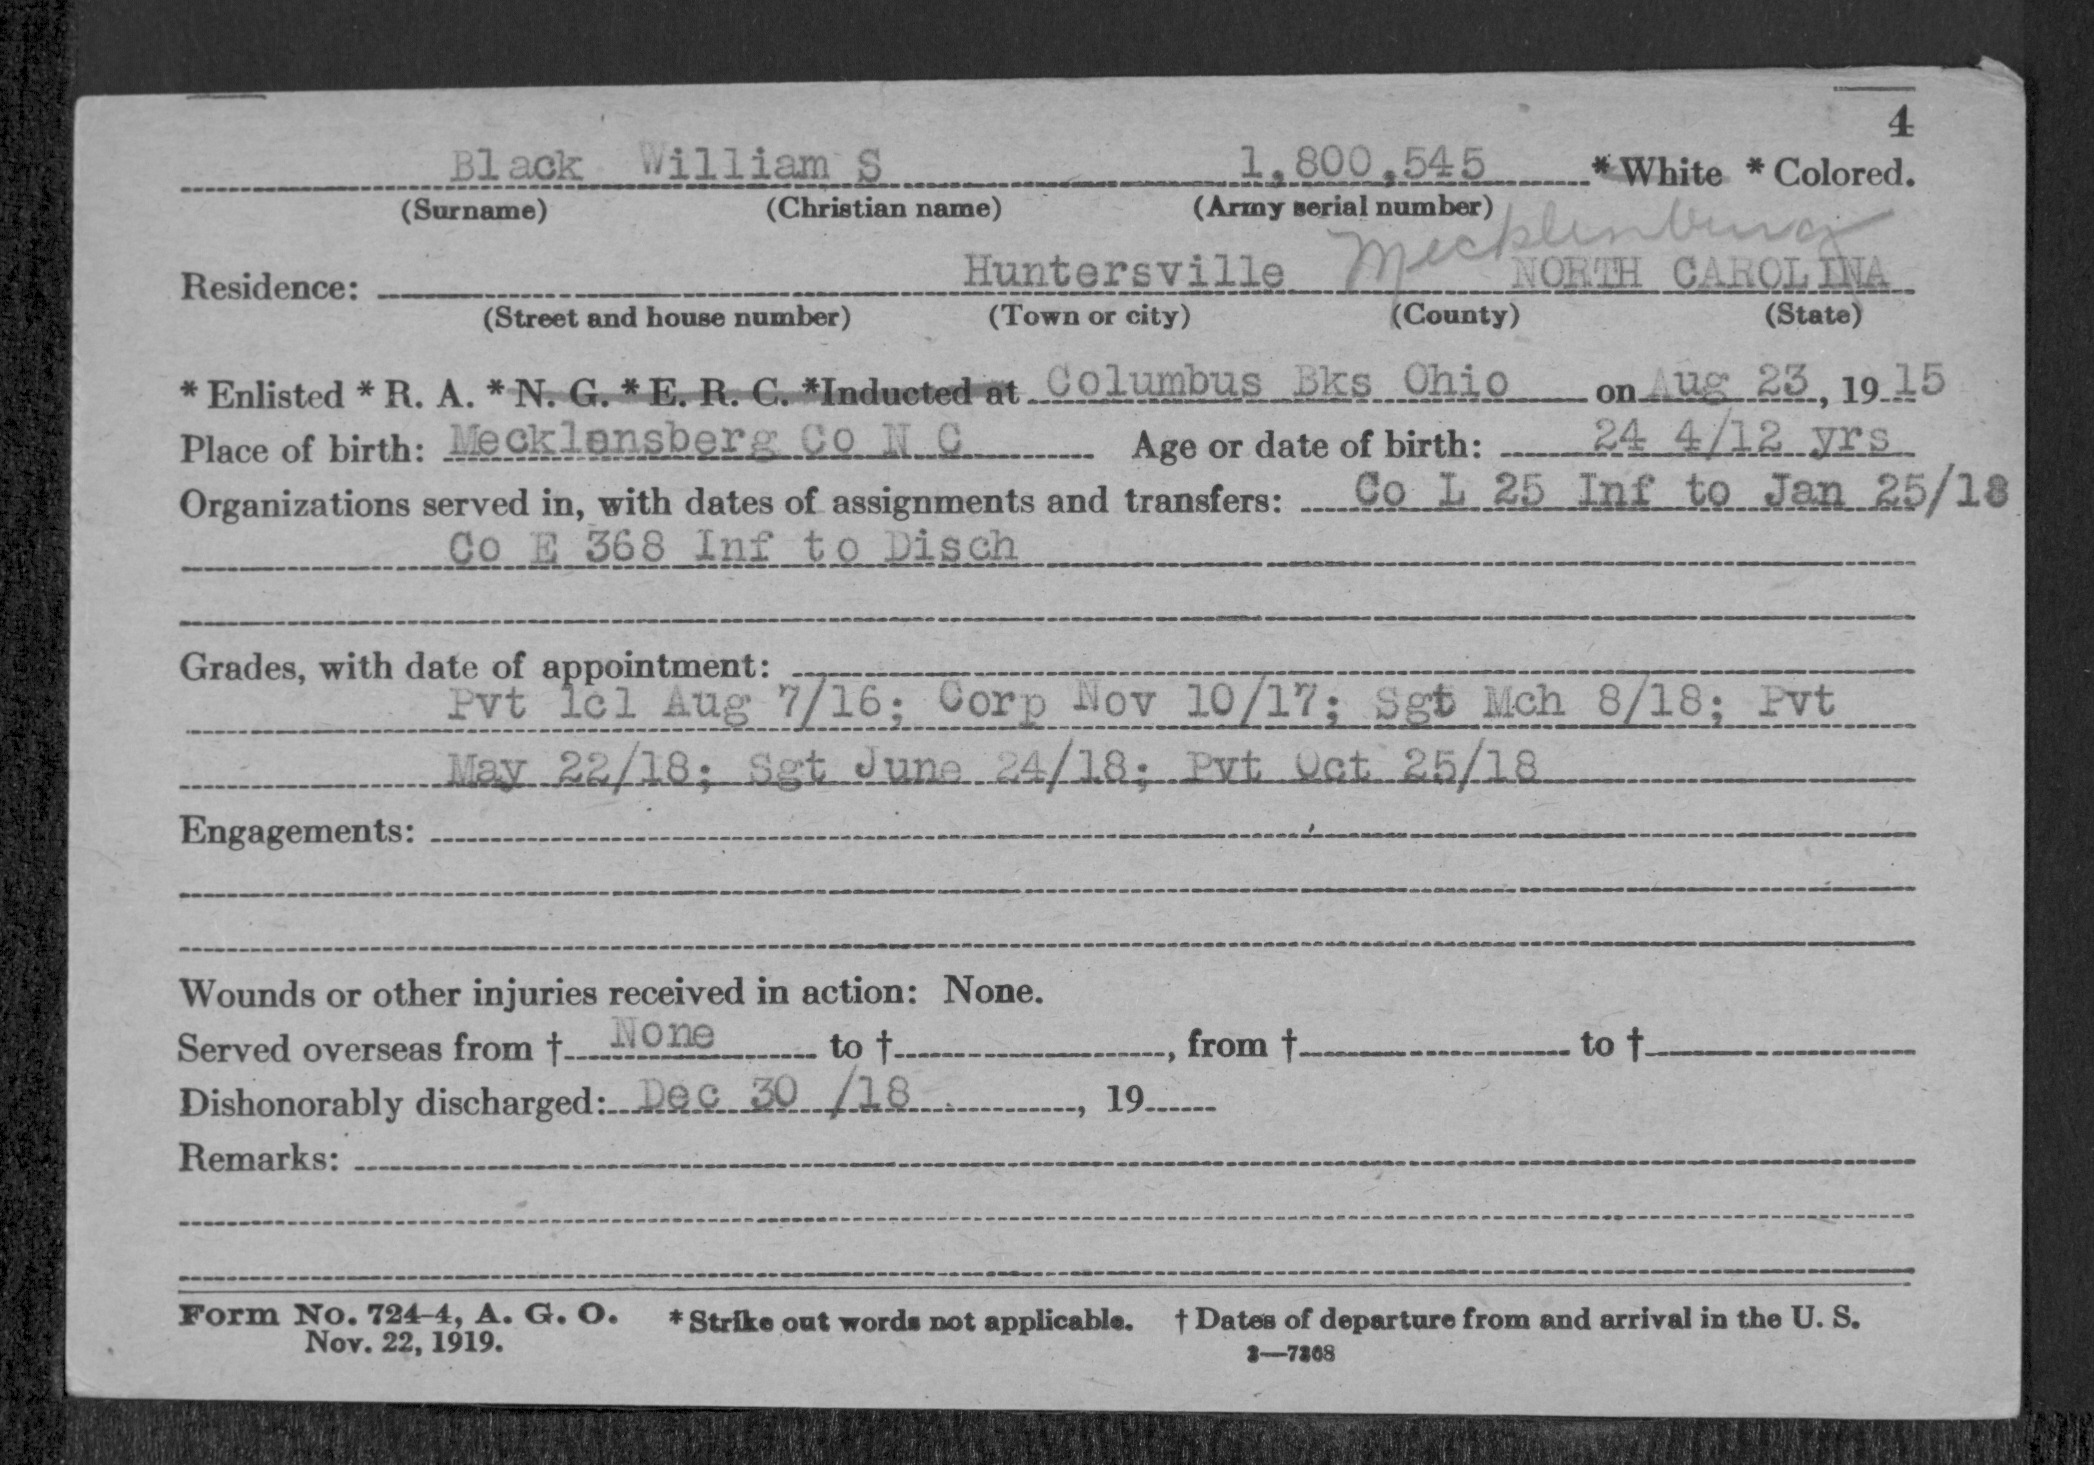 4
Black William S 1,800,545 * White * Colored.
(Surname) (Christian name) (Army serial number)
Mecklenburg
Residence: Huntersville NORTH CAROLINA
(Street and house number) (Town or city) (County) (State)
* Enlisted * R. A. * N. G. * E. R. C. *Inducted at Columbus Bks Ohio on Aug 23, 19 15
Place of birth: Mecklensberg Co N C Age or date of birth: 24 4/12 yrs
Organizations served in, with dates of assignments and transfers: Co L 25 Inf to Jan 25/18
Co E 368 Inf to Disch
Grades, with date of appointment:
Pvt 1cl Aug 7/16; Corp Nov 10/17; Sgt Mch 8/18; Pvt
May 22/18; Sgt June 24/18; Pvt Oct 25/18
Engagements:
Wounds or other injuries received in action: None.
Served overseas from † None to †, from † to †
Dishonorably discharged: Dec 30 /18, 19
Remarks:
Form No. 724-4, A. G. O. * Strike out words not applicable. † Dates of departure from and arrival in the U. S.
Nov. 22, 1919. 3—7368